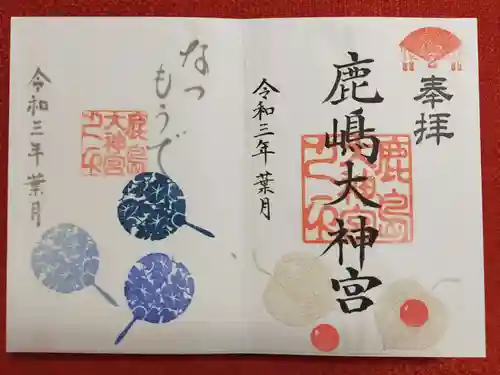 奉拝
鹿嶋大神宮
令和三年 葉月
鹿島
大神宮
なつ
もうで
鹿島
大神宮
令和三年 葉月